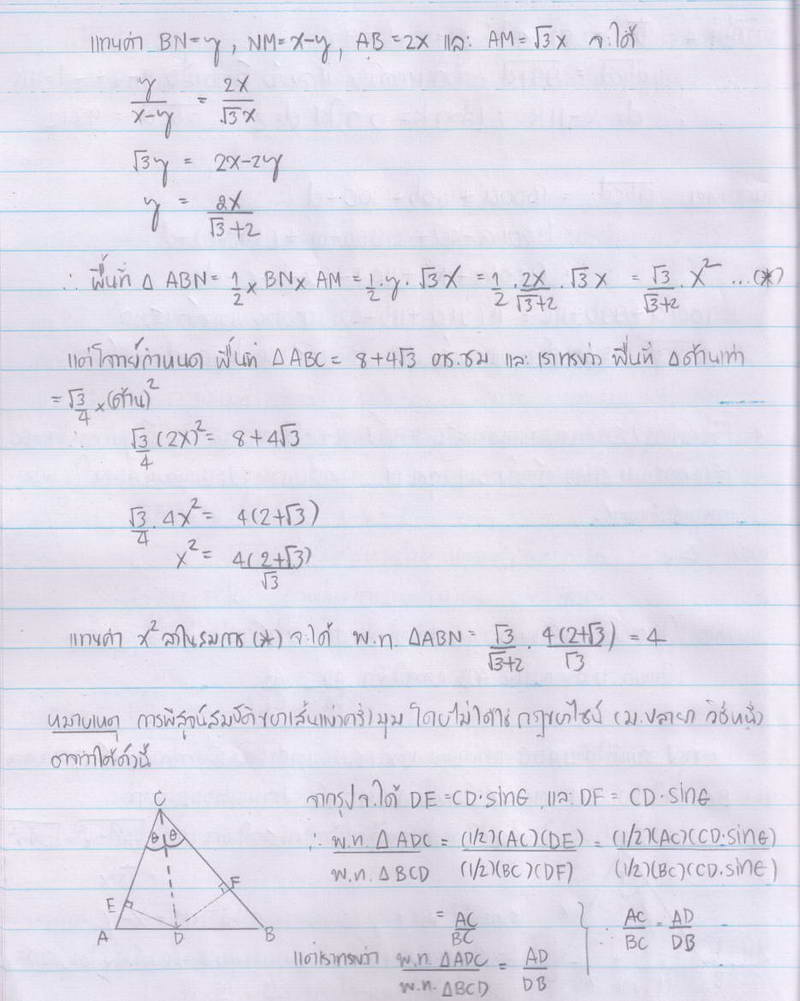 แทนค่า BN=y, NM=x-y, AB=2x และ AM=√3x จะได้
y/(x-y) = 2x/(√3x)
√3y = 2x-2y
y = 2x/(√3+2)
∴ พื้นที่ Δ ABN = 1/2 × BN × AM = 1/2 · y · √3x = 1/2 · 2x/(√3+2) · √3x = √3/(√3+2) · x² ...(*)
แต่โจทย์กำหนด พื้นที่ ΔABC = 8+4√3 ตร.ซม และ เราทราบว่า พื้นที่ Δด้านเท่า
= √3/4 × (ด้าน)²
∴ √3/4 (2x)² = 8+4√3
√3/4 · 4x² = 4(2+√3)
x² = 4(2+√3)/√3
แทนค่า x² ลงในสมการ (*) จะได้ พ.ท. ΔABN = √3/(√3+2) · 4(2+√3)/√3 = 4
หมายเหตุ การพิสูจน์สมบัติของเส้นแบ่งครึ่งมุม โดยไม่ได้ใช้ กฎของไซน์ (ม.ปลาย) วิธีหนึ่ง
อาจทำได้ดังนี้
C
θ θ
E F
A D B
จากรูป จะได้ DE = CD·sinθ และ DF = CD·sinθ
∴ พ.ท. Δ ADC / พ.ท. Δ BCD = (1/2)(AC)(DE) / (1/2)(BC)(DF) = (1/2)(AC)(CD·sinθ) / (1/2)(BC)(CD·sinθ)
= AC/BC
แต่เราทราบว่า พ.ท. ΔADC / พ.ท. ΔBCD = AD/DB
} ∴ AC/BC = AD/DB